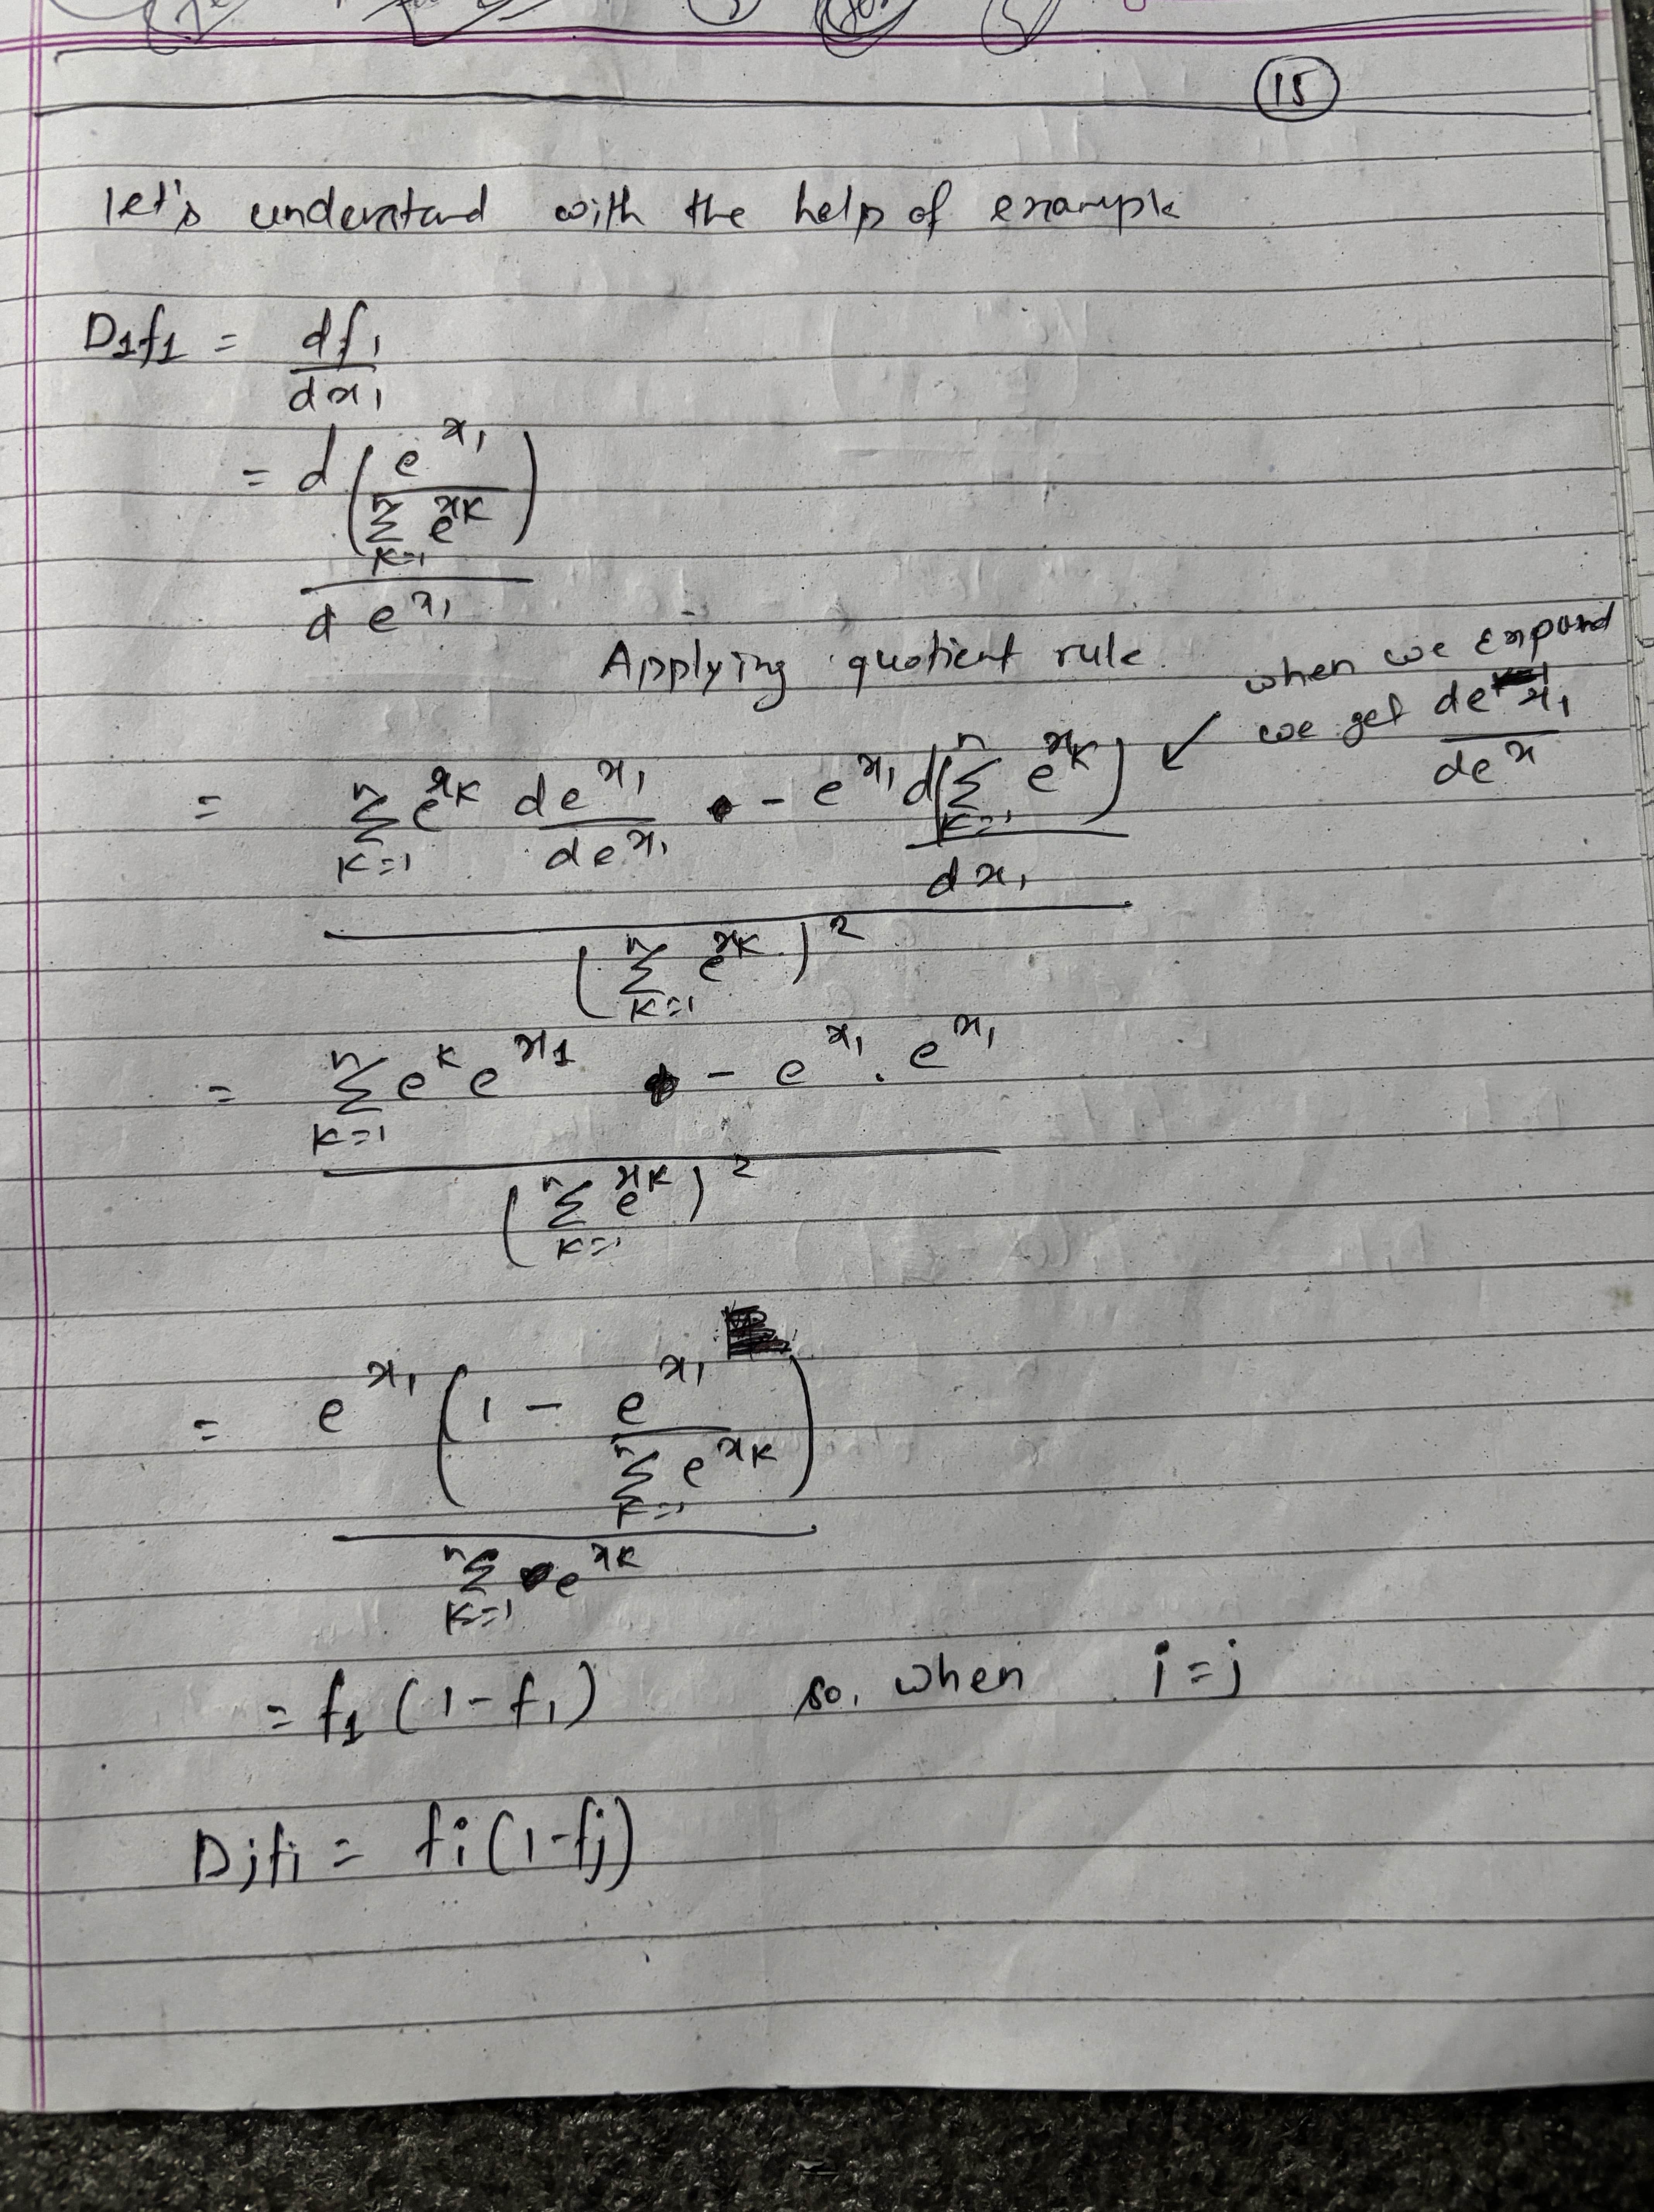 15
let's understand with the help of example
D₁f₁ = df₁/dx₁
= d(e^x₁ / Σ_{k=1}^{n} e^xk) / d e^x₁
Applying quotient rule
when we expand
we get de^x₁/de^x
= (Σ_{k=1}^{n} e^xk de^x₁/de^x₁ - e^x₁ d(Σ_{k=1}^{n} e^xk)/dx₁) / (Σ_{k=1}^{n} e^xk)²
= (Σ_{k=1}^{n} e^k e^x₁ - e^x₁ . e^x₁) / (Σ_{k=1}^{n} e^xk)²
= e^x₁ (1 - e^x₁ / Σ_{k=1}^{n} e^xk) / Σ_{k=1}^{n} e^xk
= f₁ (1 - f₁) so, when i = j
Djfi = fi (1 - fj)